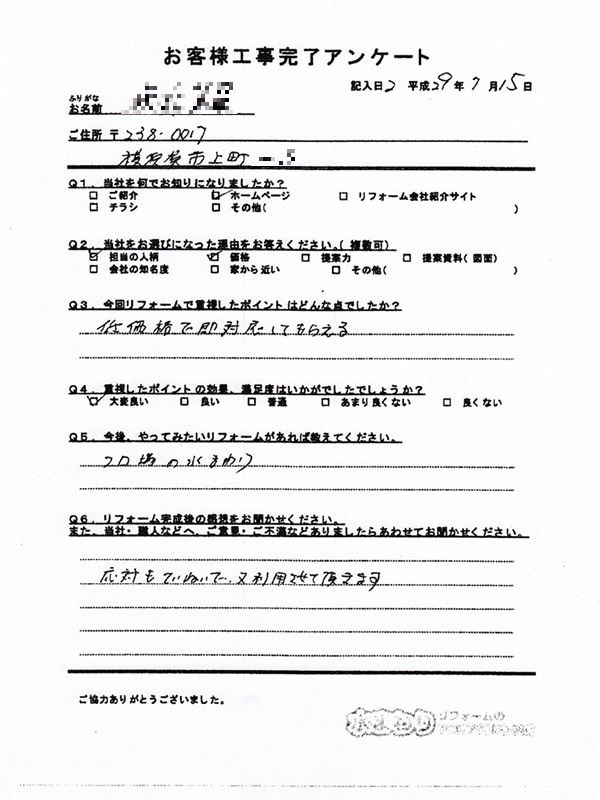 お客様工事完了アンケート
記入日 平成29年7月15日
ふりがな
お名前
ご住所 〒238-0017
横須賀市上町
Q1．当社を何でお知りになりましたか？
□ ご紹介 ☑ ホームページ □ リフォーム会社紹介サイト
□ チラシ □ その他( )
Q2．当社をお選びになった理由をお答えください。( 複数可)
☑ 担当の人柄 ☑ 価格 □ 提案力 □ 提案資料( 図面)
□ 会社の知名度 □ 家から近い □ その他( )
Q3．今回リフォームで重視したポイントはどんな点でしたか？
低価格で即対応してもらえる
Q4．重視したポイントの効果、満足度はいかがでしたでしょうか？
☑ 大変良い □ 良い □ 普通 □ あまり良くない □ 良くない
Q5．今後、やってみたいリフォームがあれば教えてください。
フロ場の水まわり
Q6．リフォーム完成後の感想をお聞かせください。
また、当社・職人などへ、ご意見・ご不満などありましたらあわせてお聞かせください。
応対もていねいで、又利用させて頂きます
ご協力ありがとうございました。
水まわり リフォームの